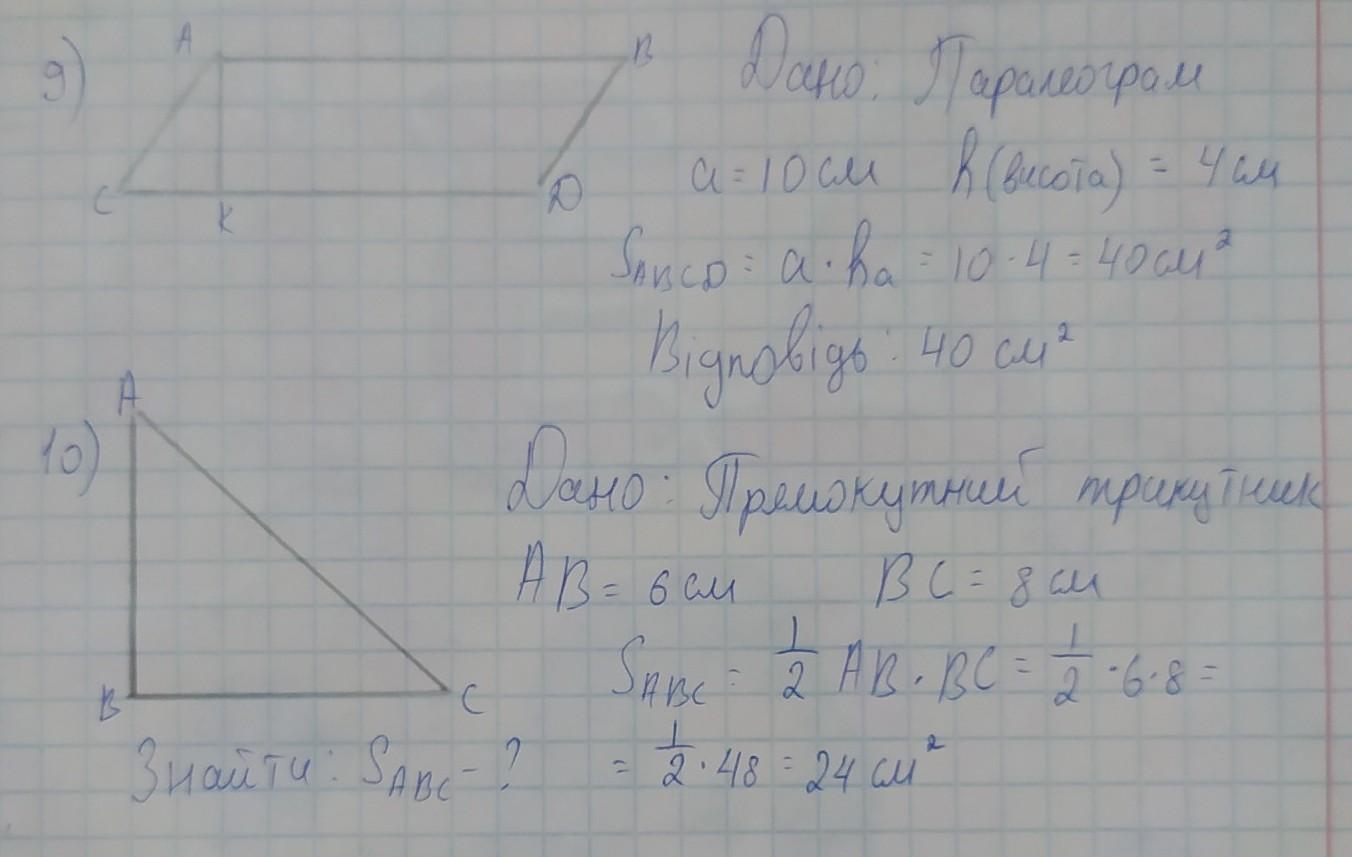 9)
A
B
C
K
D
Дано: Паралеограм
a = 10 см h (висота) = 4 см
S_ABCD = a · h_a = 10 · 4 = 40 см²
Відповідь: 40 см²
10)
A
B
C
Дано: Прямокутний трикутник
AB = 6 см BC = 8 см
S_ABC = 1/2 AB · BC = 1/2 · 6 · 8 =
Знайти: S_ABC - ? = 1/2 · 48 = 24 см²